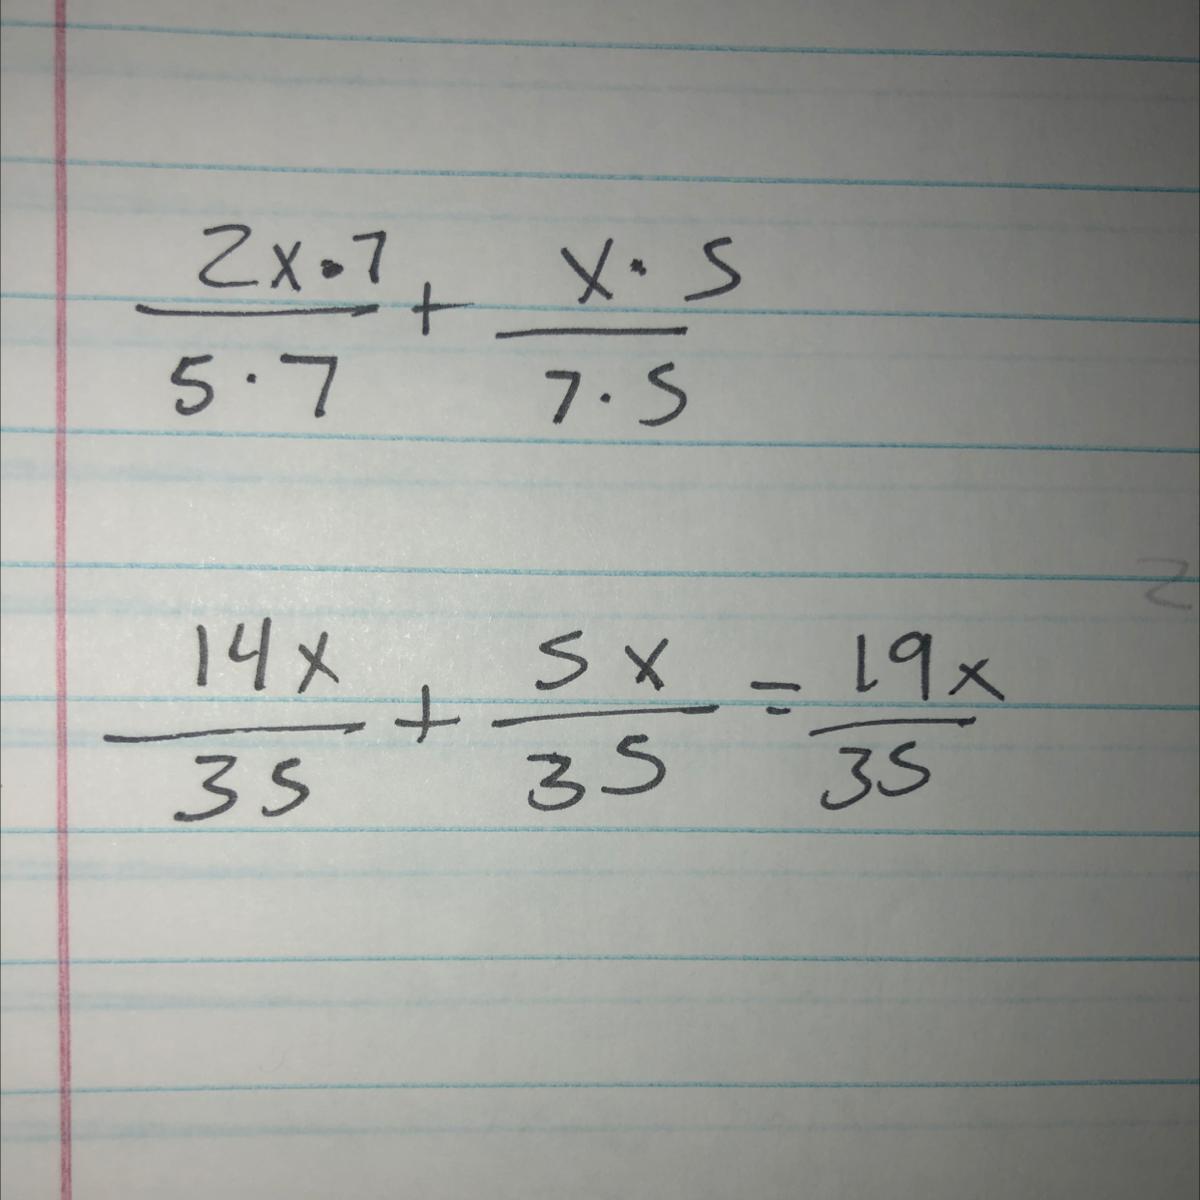 2x·7/5·7 + x·5/7·5
14x/35 + 5x/35 = 19x/35